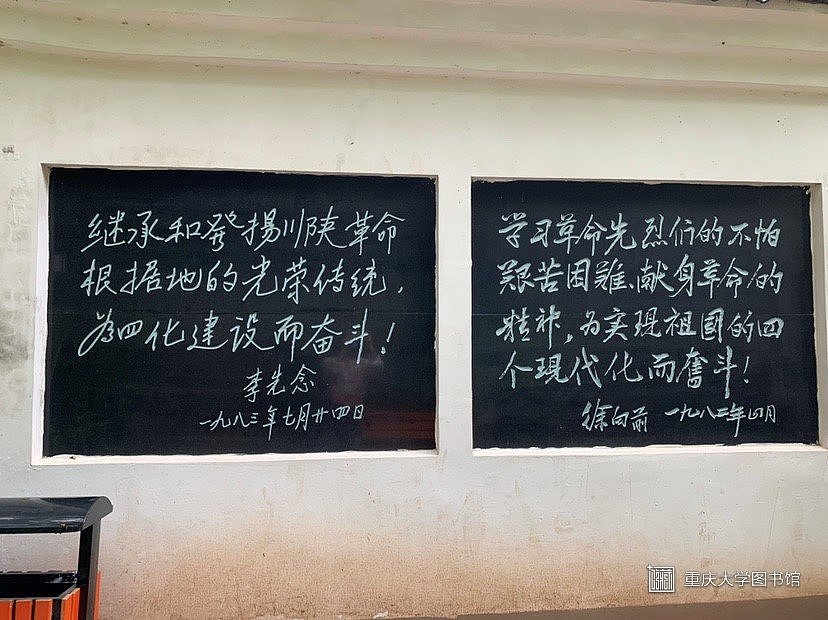 继承和發揚川陕革命
根据地的光荣传统，
为四化建设而奋斗！
李先念
一九八三年七月廿四日
学习革命先烈们的不怕
艰苦困难、献身革命的
精神，为实现祖国的四
个现代化而奮斗！
徐向前 一九八二年四月
重庆大学图书馆